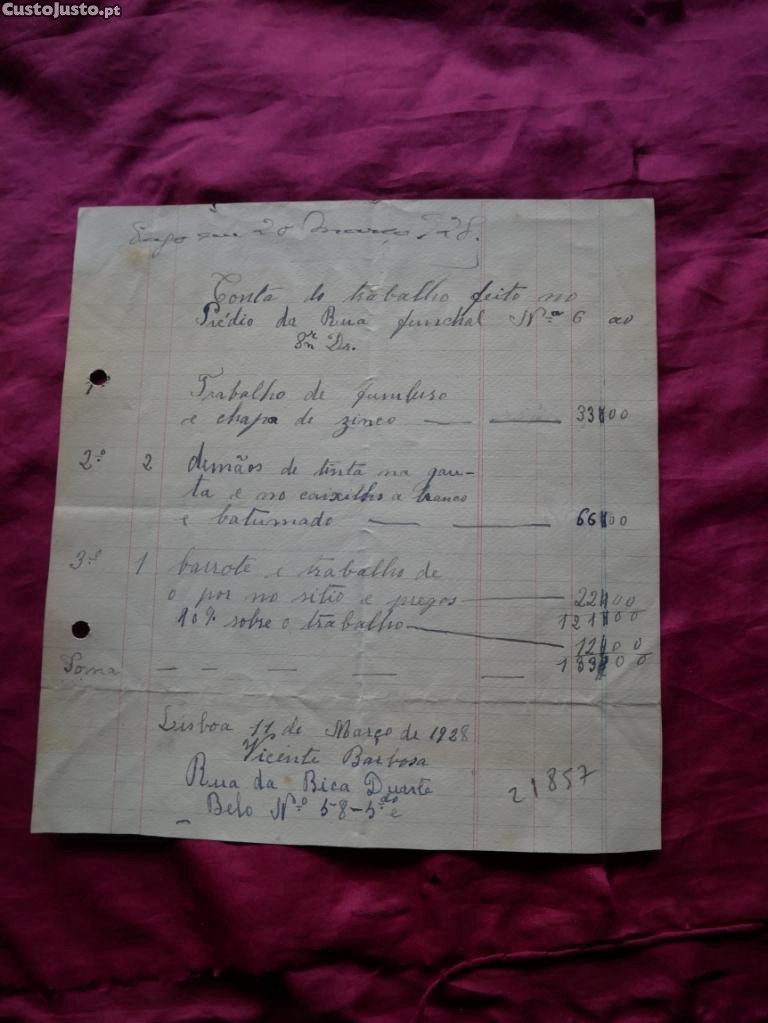 CustoJusto.pt
em 20 Março 928.
Conta do trabalho feito no
Prédio da Rua funchal Nº 6 ao
Dr.
1º Trabalho de
e chapa de zinco — — 33$00
2.º 2 demãos de tinta na
e no caixilho a branco
e batumado — — 66$00
3.º 1 barrote e trabalho de
o por no sitio e pregos — 22$00
121$00
10% sobre o trabalho — 12$00
Soma — — — — — 133$00
Lisboa 11 de Março de 1928
Vicente Barbosa
Rua da Bica Duarte
Belo Nº 58-5º e
21857